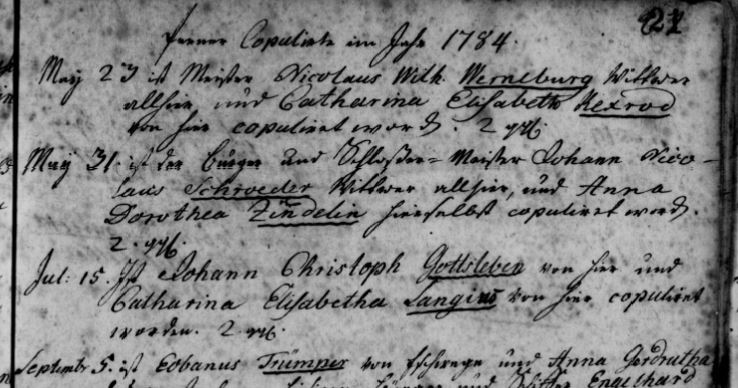 21
Ferner Copulirte im Jahr 1784.
May 23 ist Meister Nicolaus With. Werneburg Wittwer
allhier, und Catharina Elisabeth Rexrod
von hier copulirt word. 2 ggl.
May 31. ist der Burger und Schloßer-Meister Johann Nico-
laus Schroeder Wittwer allhier, und Anna
Dorothea Zindelin hierselbst copuliret word.
2. ggl.
Jul: 15. Ist Johann Christoph Gottsleben von hier und
Catharina Elisabetha Langius von hier copulirt
worden. 2. ggl.
Septembr 5. ist Eobanus Trümper von Eschwege und Anna Gerdrutha
Engelhard